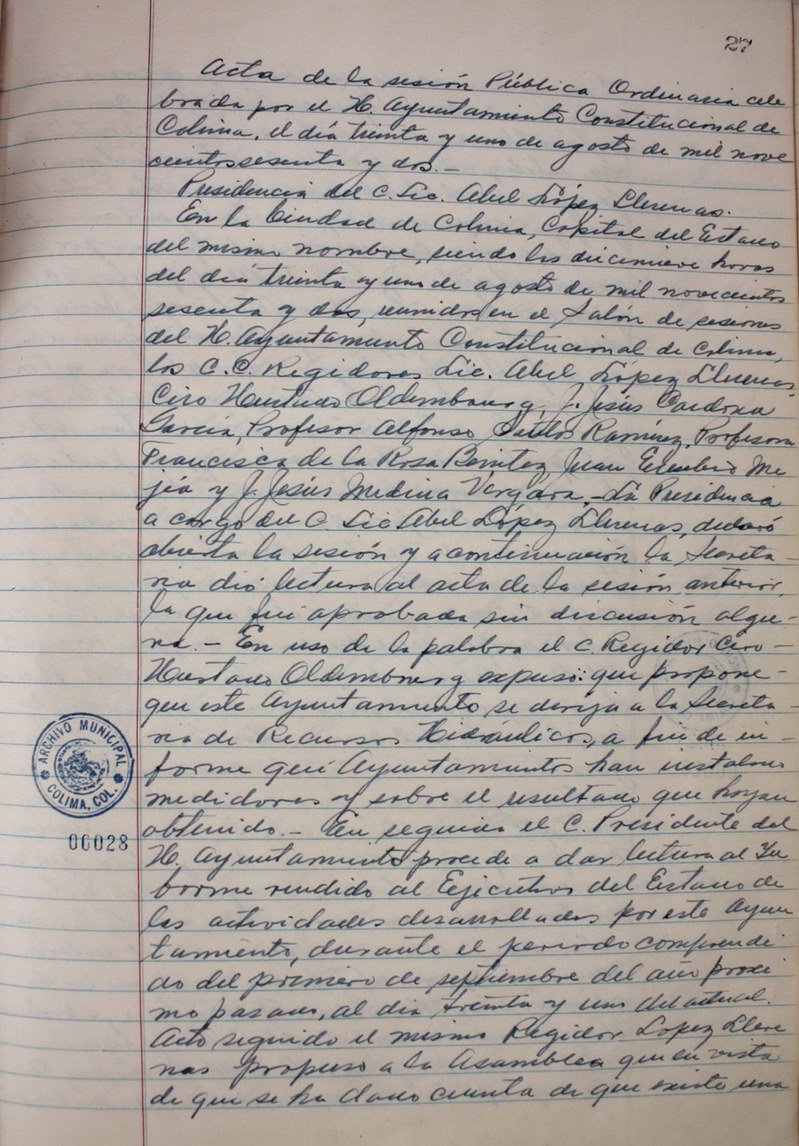 27
Acta de la sesión Pública Ordinaria cele
brada por el H. Ayuntamiento Constitucional de
Colima, el día treinta y uno de agosto de mil nove
cientos sesenta y dos.-
Presidencia del C. Lic. Abel López Llerenas.
En la Ciudad de Colima, Capital del Estado
del mismo nombre, siendo las diecinueve horas
del día treinta y uno de agosto de mil novecientos
sesenta y dos, reunidos en el Salón de sesiones
del H. Ayuntamiento Constitucional de Colima,
los C.C. Regidores Lic. Abel López Llerenas,
Ciro Hurtado Oldembourg, J. Jesús Cardona
García, Profesor Alfonso Ramírez, Profesora
Francisca de la Rosa Benitez, Juan Eusebio Me
jía y J. Jesús Medina Vergara.- La Presidencia
a cargo del C. Lic Abel López Llerenas, declaró
abierta la sesión y a continuación la Secreta-
ria dió lectura al acta de la sesión anterior,
la que fué aprobada sin discusión algu-
na.- En uso de la palabra el C Regidor Ciro-
Hurtado Oldembourg expuso: que propone-
que este Ayuntamiento se dirija a la Secreta-
ria de Recursos Hidráulicos, a fin de in-
forme qué Ayuntamientos han instalado
medidores y sobre el resultado que hayan
obtenido.- En seguida el C. Presidente del
H. Ayuntamiento procede a dar lectura al In
forme rendido al Ejecutivo del Estado de
las actividades desarrolladas por este Ayun
tamiento, durante el periodo comprendi
do del primero de septiembre del año próxi
mo pasado, al día treinta y uno del actual.
Acto seguido el mismo Regidor López Llere
nas propuso a la Asamblea que en vista
de que se ha dado cuenta de que existe una
ARCHIVO MUNICIPAL
COLIMA, COL.
00028